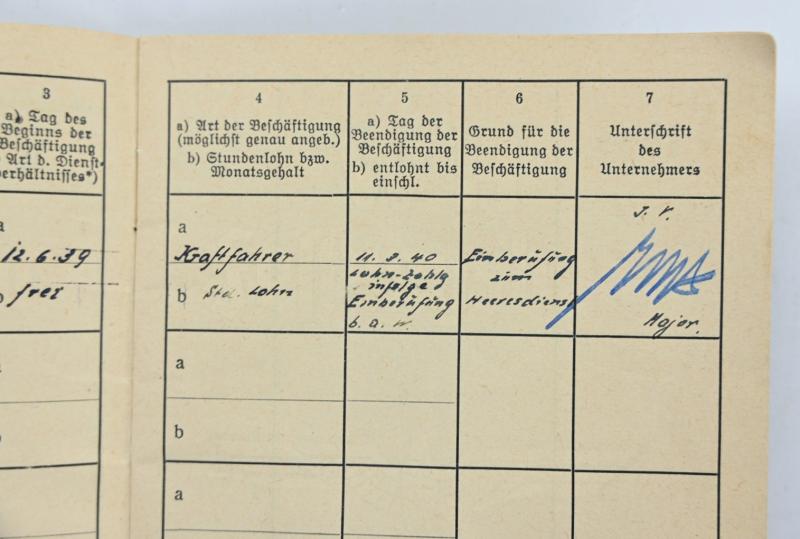 3
a) Tag des
Beginns der
Beschäftigung
Art d. Dienst-
verhältnisses*)
a
12.6.39
b frei
4
a) Art der Beschäftigung
(möglichst genau angeb.)
b) Stundenlohn bzw.
Monatsgehalt
5
a) Tag der
Beendigung der
Beschäftigung
b) entlohnt bis
einschl.
6
Grund für die
Beendigung der
Beschäftigung
7
Unterschrift
des
Unternehmers
a
Kraftfahrer
b Std. Lohn
11.2.40
Lohn-zahlg
infolge
Einberufung
b.a.w.
Einberufung
zum
Heeresdienst
I.V.
Major.
a
b
a